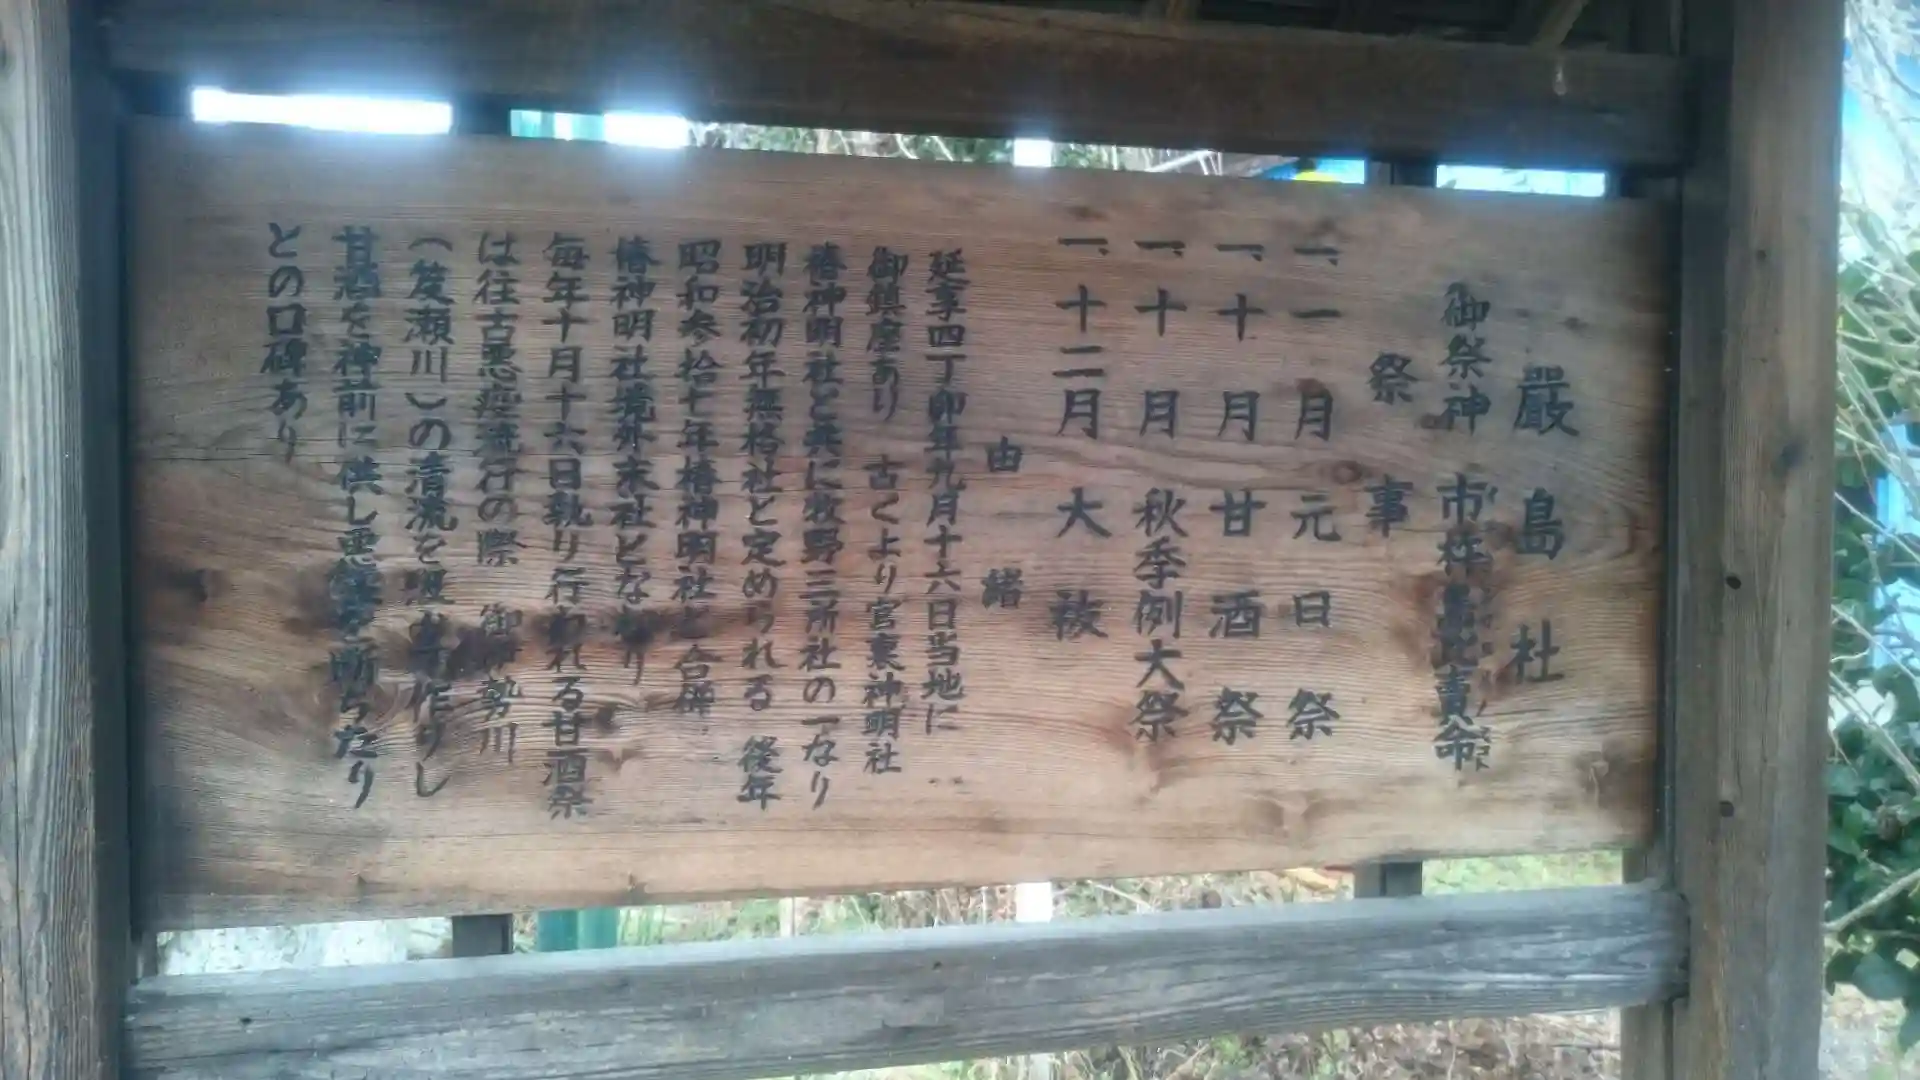 厳島社
御祭神 市杵島比売命
祭事
一、一月元日祭
一、十月甘酒祭
一、十月秋季例大祭
一、十二月大祓
由緒
延享四丁卯年九月十六日当地に
御鎮座あり 古くより官裏神明社
椿神明社と共に牧野三所社の一なり
明治初年無格社と定められる 後年
昭和参拾七年椿神明社と合併
椿神明社境外末社となれり
毎年十月十六日執り行われる甘酒祭
は往古悪疫流行の際 御伊勢川
(笈瀬川)の清流を汲み 作りし
甘酒を神前に供し悪疫を断ちたり
との口碑あり